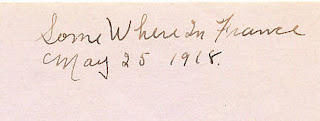 Some Where In France
May 25 1918.